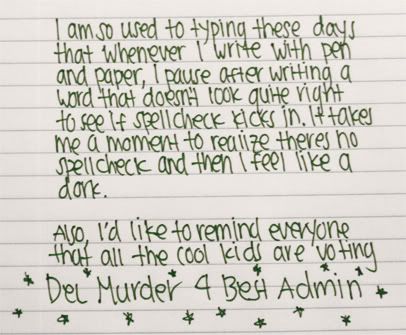 I am so used to typing these days
that whenever I write with pen
and paper, I pause after writing a
word that doesn't look quite right
to see if spellcheck kicks in. It takes
me a moment to realize theres no
spellcheck and then I feel like a
dork.
Also, I'd like to remind everyone
that all the cool kids are voting
Del Murder 4 Best Admin